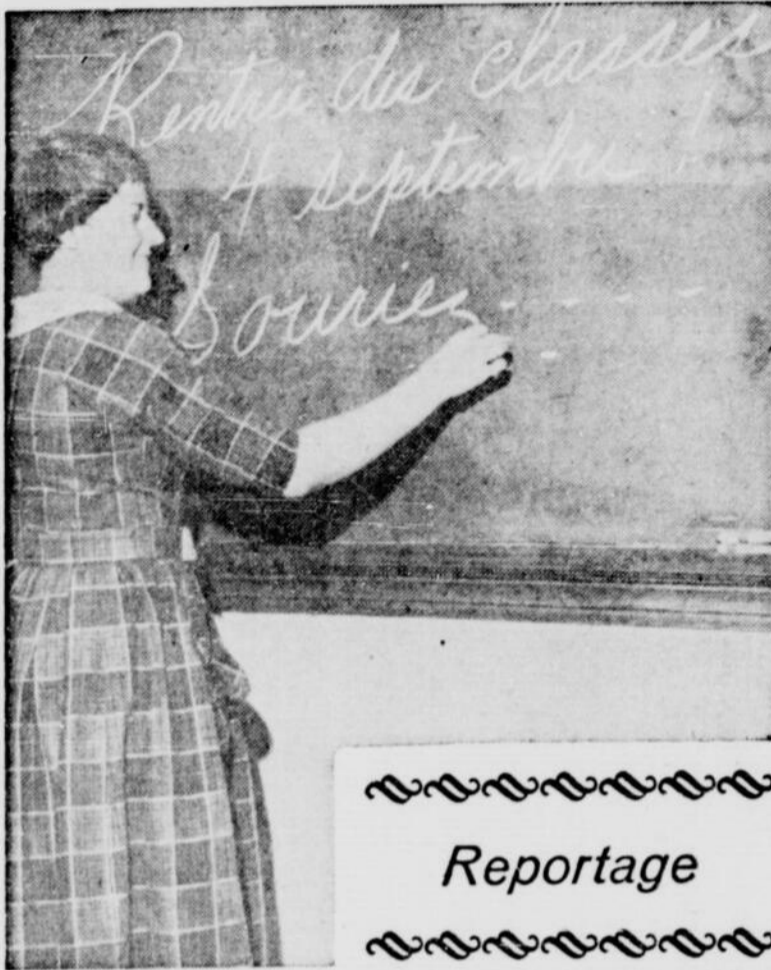 Rentrée des classes
4 septembre !
Souriez - - - -
Reportage